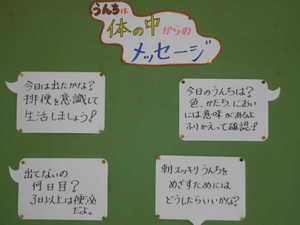 うんちは
体の中からの
メッセージ
今日は出たかな?
排便を意識して
生活しましょう!
今日のうんちは?
色、かたち、におい
には意味があるよ
ふりかえって確認!
出てないの
何日目?
3日以上は便秘
だよ。
朝スッキリうんちを
めざすためには
どうしたらいいかな?